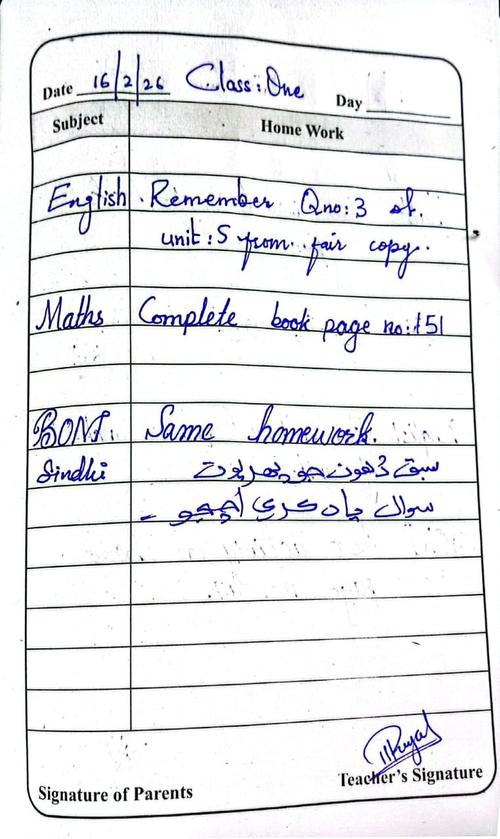 Date 16/2/26 Class: One Day
Subject Home Work
English Remember Qno: 3 of
unit: 5 from fair copy.
Maths Complete book page no: 151
Same homework.
Sindhi سبق 3 هون جو پهريون
سوال ياد ڪري اچجو -
Signature of Parents Teacher's Signature